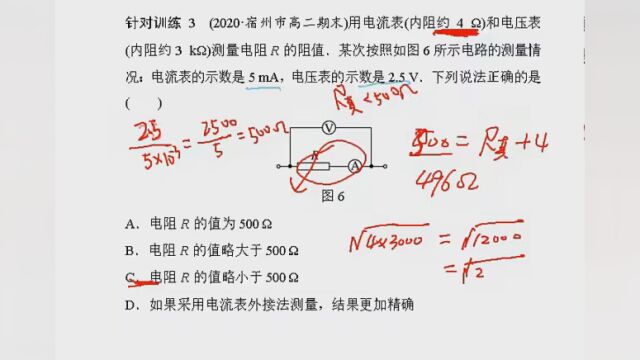 针对训练 3 (2020·宿州市高二期末)用电流表(内阻约 4 Ω)和电压表
(内阻约 3 kΩ)测量电阻 R 的阻值．某次按照如图 6 所示电路的测量情
况：电流表的示数是 5 mA，电压表的示数是 2.5 V．下列说法正确的是
(　　)
R真<500Ω
2.5/5×10⁻³=2500/5=500Ω
V
R
A
500=R真+4
496Ω
图 6
A．电阻 R 的值为 500 Ω
√4×3000=√12000
B．电阻 R 的值略大于 500 Ω
=√2
C．电阻 R 的值略小于 500 Ω
D．如果采用电流表外接法测量，结果更加精确